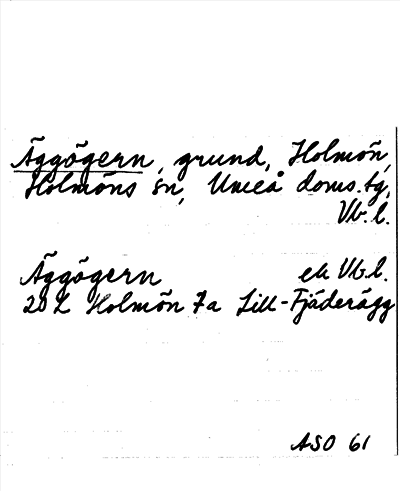 Äggögern, grund, Holmön,
Holmöns sn, Umeå doms.tg,
Vb.l.
Äggögern ek Vb.l.
20 L Holmön 7a Lill-Fjäderägg
ASO 61